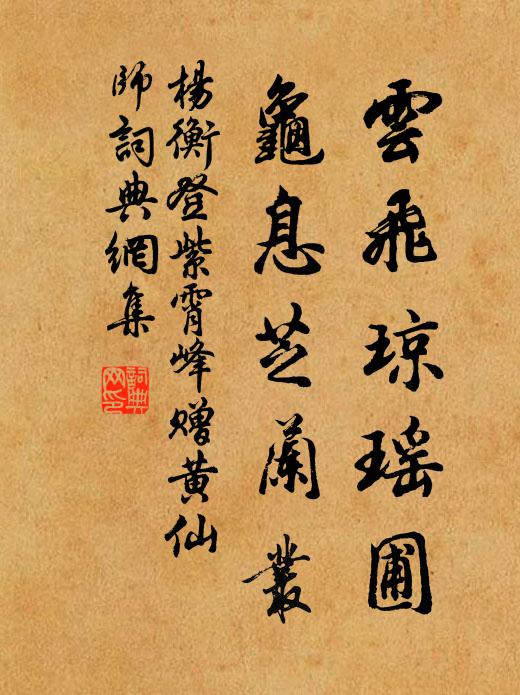 雲飛琼瑶圃
龜息芝蘭叢
楊衡登紫霄峰贈黄仙
師詞典網集
詞典
网印